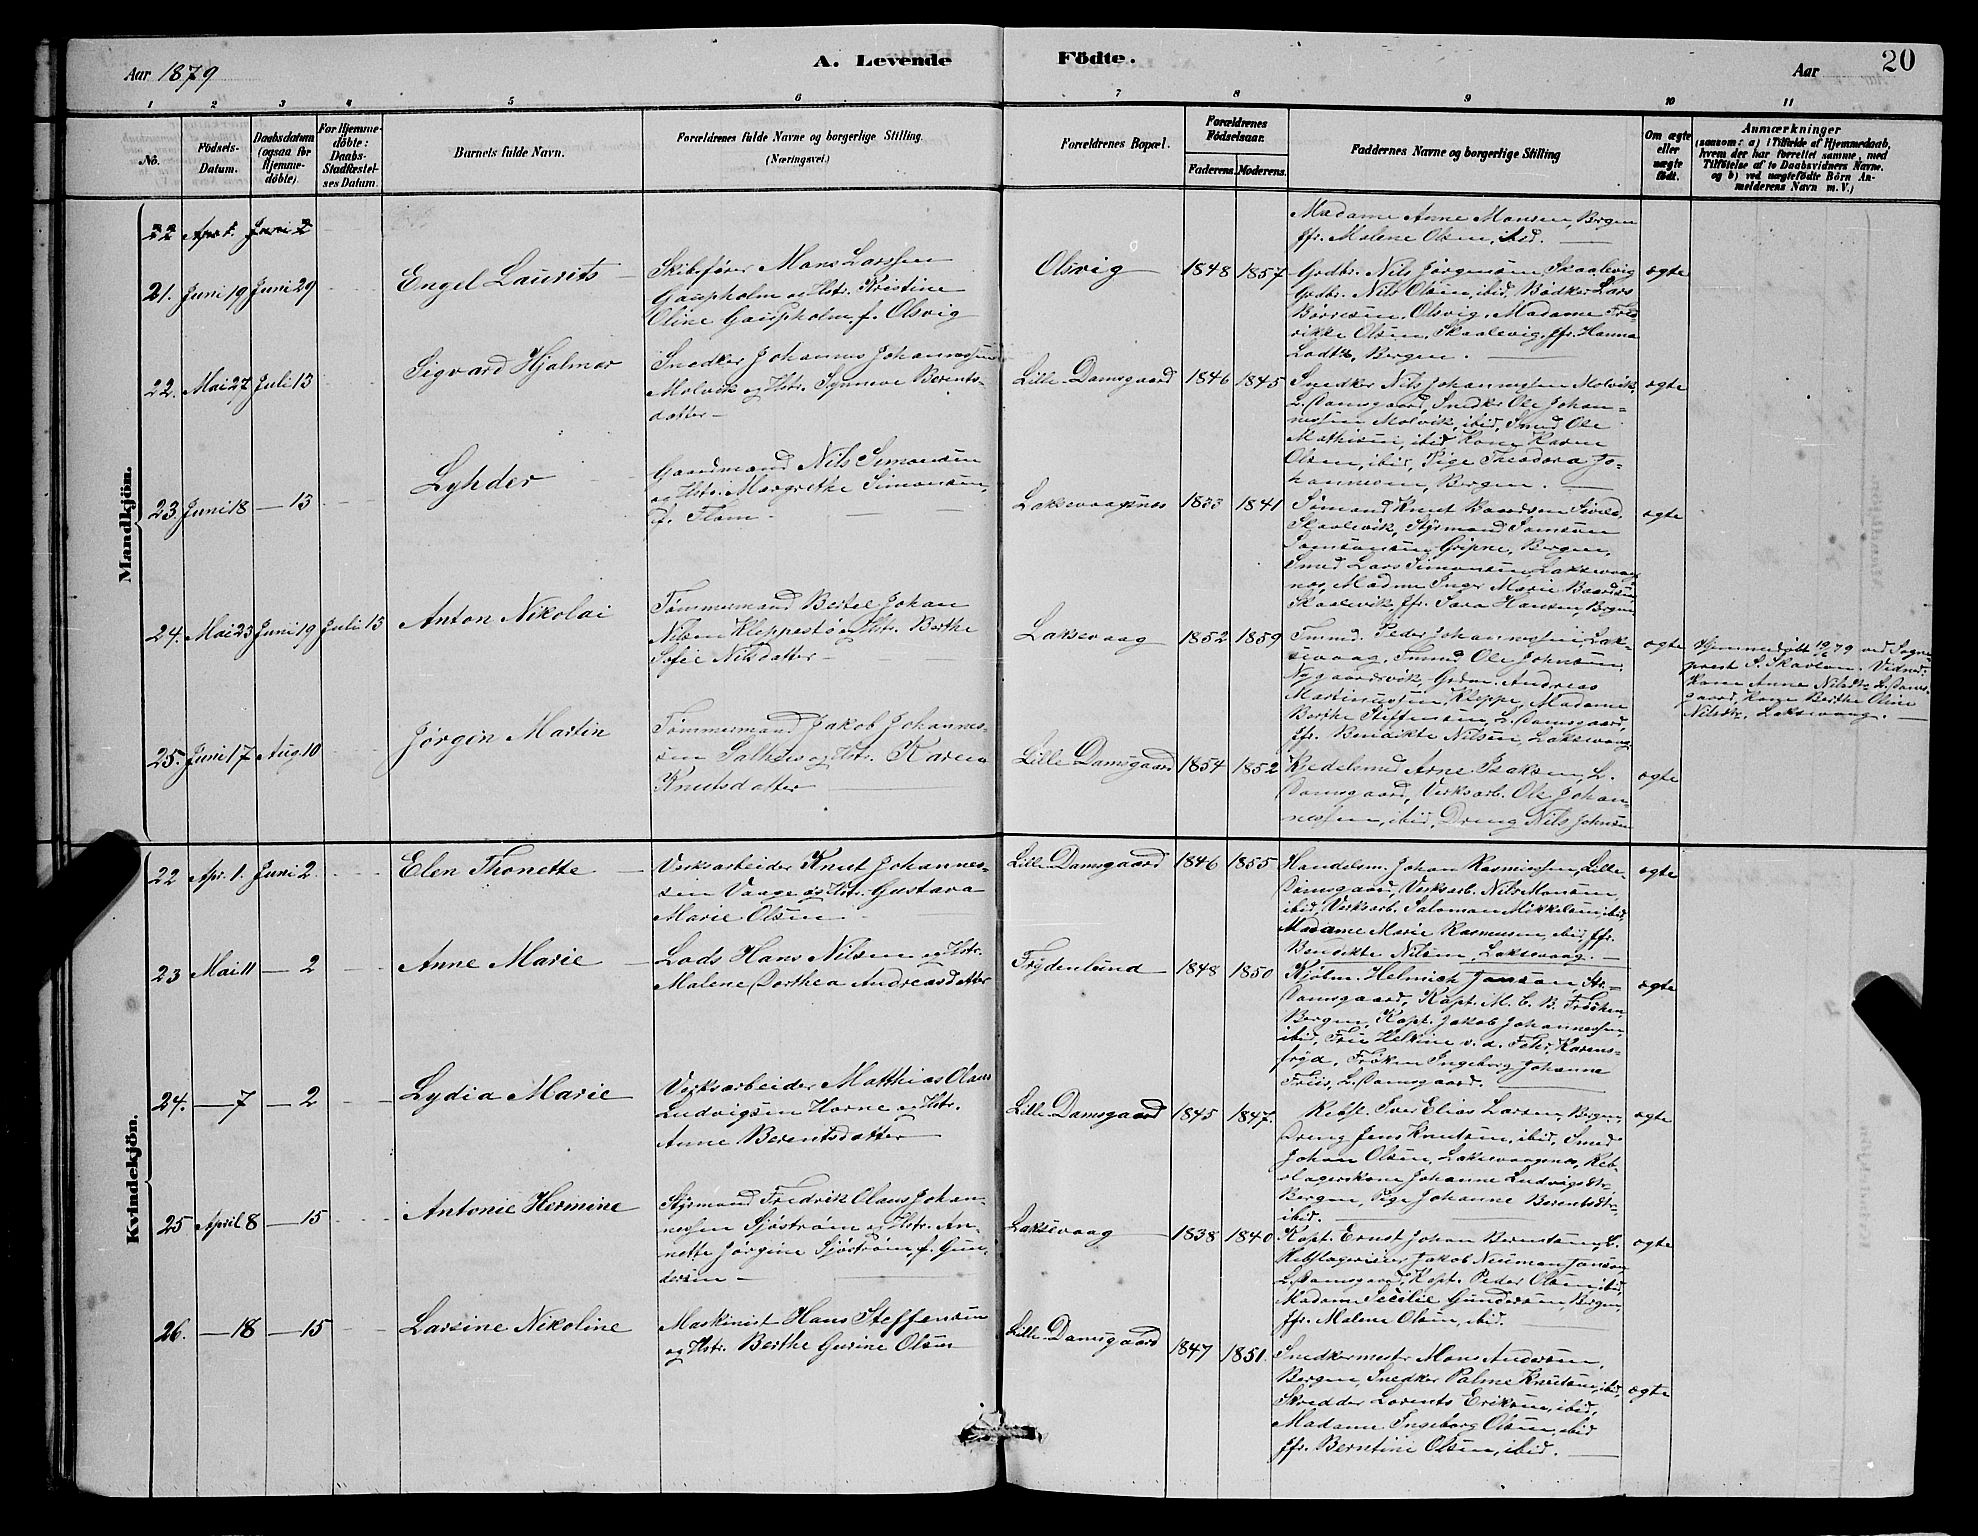 Aar 1879
A. Levende
Födte.
Aar
20
1 2 3 4 5 6 7 8 9 10 11
No.
Födsels-
Datum.
Daabsdatum
(ogsaa for
Hjemme-
döbte).
For Hjemme-
döbte:
Daabs-
Stadfæstel-
ses Datum.
Barnets fulde Navn.
Forældrenes fulde Navne og borgerlige Stilling
(Næringsvei.)
Forældrenes Bopæl.
Forældrenes
Födselsaar.
Faderens. Moderens.
Faddernes Navne og borgerlige Stilling
Om ægte
eller
uægte
födt.
Anmærkninger
(saasom: a) i Tilfælde af Hjemmedaab,
hvem der har forrettet samme, med
Tilföielse af to Daabsvidners Navne.
og b) ved uægtefödte Börn An-
melderens Navn m. V.)
Mandkjön.
22 Apr. 1. Juni 2
Madame Anne Monsen, Bergen
Jfr. Malene Olsen, ibid.
21. Juni 19 Juni 29
Engel Laurits
Skibsfører Mons Larssen
Gaupholm og Hstr. Kristine
Oline Gaupholm f. Olsvig
Olsvig
1848 1857
Grdbr. Nils Jørgensen, Skaalevig
Grdbr. Nils Olsen, ibid, Bødker Lars
Børresen, Olsvig, Madame Fred-
rikke Olsen, Skaalevig, Jfr. Hanna
Bergen.
ægte
22. Mai 27 Juli 13
Sigvard Hjalmar
Snedker Johannes Johannessen
Molvik og Hstr. Synneve Berents-
datter
Lille Damsgaard
1846 1845
Snedker Nils Johannessen Molvik,
L. Damsgaard, Snedker Ole Johan-
nessen Molvik, ibid, Smed Ole
Mathisen, ibid, Kone Karen
Olsen, ibid, Pige Theodora Jo-
hannesen, Bergen.
ægte
23. Juni 18 — 13
Lyhder
Gaardmand Nils Simonsen
og Hstr. Margrethe Simonsen,
f. Flam
Laksevaagsnes
1833 1841
Sømand Knut Baardsen
Skaalevik, Styrmand Samson
Samsonsen Gripne, Bergen,
Smed Lars Simonsen, Laksevaag
nes, Madme Inger Marie Baardsen
Skaalevik, Jfr. Sara Hansen, Bergen
ægte
24. Mai 23 Juni 19 Juli 13
Anton Nikolai
Tømmermand Bertel Johan
Nilsen Kleppestø og Hstr. Berthe
Sofie Nilsdatter
Laksevaag
1852 1859
Tmmd. Peder Johannessen, Lak-
sevaag, Tmmd Ole Johnsen,
Nygaardsvik, Grdm. Andreas
Martinussen, Kleppe, Madame
Berthe Steffensen, L. Damsgaard,
Jfr. Bendikte Nilsen, Laksevaag
ægte
Hjemmedøbt 19/6 79 ved Sogne-
prest S. Skavlan. Vidner:
Kone Anne Nilsdtr L. Dams-
gaard, Kone Berthe Oline
Nilsdtr, Laksevaag.
25. Juni 17 Aug. 10
Jørgen Martin
Tømmermand Jakob Johannes-
sen Salhus og Hstr. Karen
Knutsdatter
Lille Damsgaard
1854 1852
Kedelsmed Arne Isaksen, L.
Damsgaard, Verksarb. Ole Johan-
nessen, ibid, Dreng Nils Johnsen
ægte
Kvindekjön.
22 Apr. 1. Juni 2
Elen Thonette
Verksarbeider Knut Johannes-
sen Vaage og Hstr. Gustava
Marie Olsen
Lille Damsgaard
1846 1855
Handelsm. Johan Rasmussen, Lille-
Damsgaard, Verksarb. Nils Monsen,
ibid, Verksarb. Salomon Mikkelsen, ibid,
Madame Marie Rasmusen, ibid, Jfr.
Bendikte Nilsen, Laksevaag.
ægte
23 Mai 11 — 2
Anne Marie
Lods Hans Nilsen og Hstr.
Malene Dorthea Andreasdatter
Frydenlund
1848 1850
Kjøbm. Helmich Janson, St.
Damsgaard, Kapt. M. C. B. Frøchen,
Bergen, Kapt. Jakob Johannessen,
ibid, Frue Helkine v. d. Fehr, Karens-
fryd, Frøken Ingeborg Johanne
Friis, L. Damsgaard.
ægte
24. — 7 — 2
Lydia Marie
Verksarbeider Matthias Olaus
Ludvigsen Horne og Hstr.
Anne Berentsdatter
Lille Damsgaard
1845 1847.
Rebsl. Iver Elias Larsen, Bergen,
Dreng Jens Knutsen, ibid, Smed
Johan Olsen, Laksevaagsnes, Reb-
slagerskone Johanne Ludvigsdtr
Bergen, Pige Johanne Berentsdtr,
ibid.
ægte
25 April 8 — 15
Antonie Hermine
Styrmand Fredrik Olaus Johan-
nessen Sjøstrøm og Hstr. An-
nette Jørgine Sjøstrøm, f. Gun-
dersen
Laksevaag
1838 1840
Kapt. Ernst Johan Berentsen, L.
Rebslagerieier Jakob Neuman Janson
L. Damsgaard, Kapt. Peder Olsen ibid,
Madame Secilie Gundersen, Bergen,
Jfr. Malene Olsen, ibid.
ægte
26. — 18 — 15
Larsine Nikoline
Maskinist Hans Steffensen
og Hstr. Berthe Gurine Olsen
Lille Damsgaard
1847 1851.
Snedkermester Mons Andersen,
Bergen, Snedker Palme Knutsen, ibid,
Skredder Lorents Eriksen, ibid,
Madame Ingeborg Olsen, ibid
Jfr. Berntine Olsen, ibid.
ægte